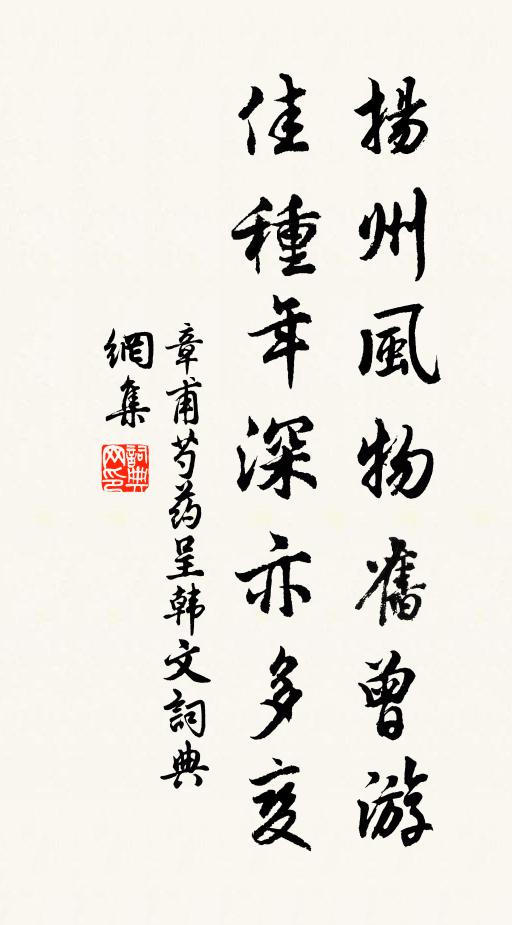 揚州風物舊曾游
佳種年深亦多変
章甫芍药呈韩文詞典
網集
詞典
网印